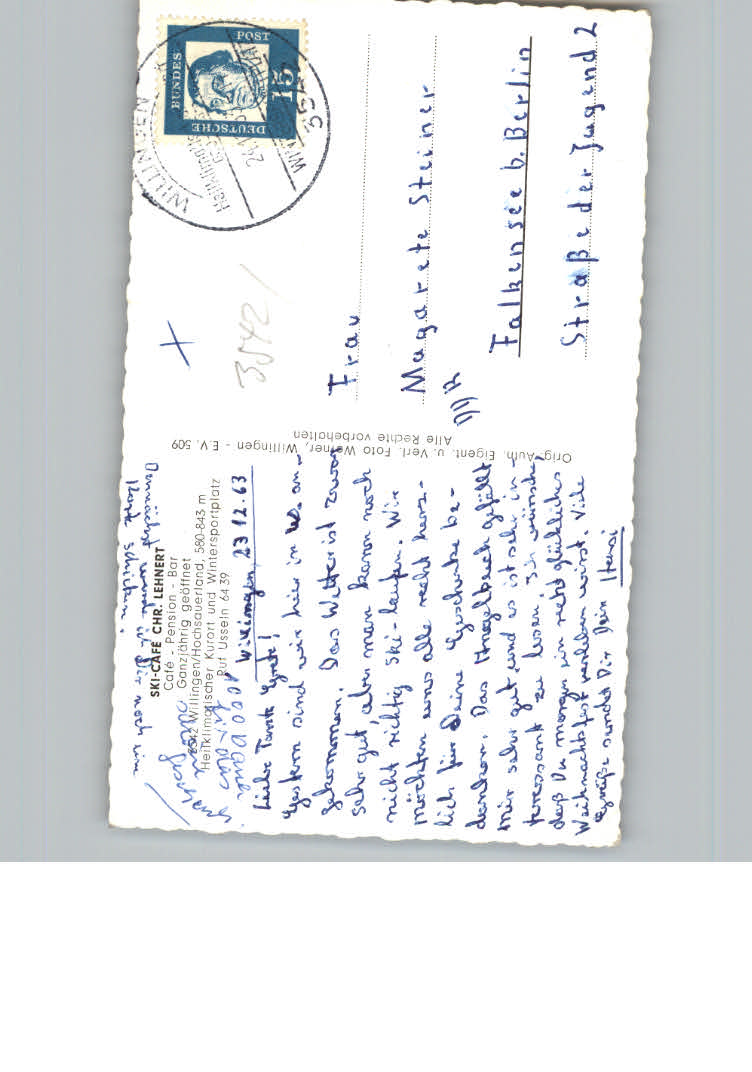 Demnächst werde ich Dir noch eine
Karte schicken.
SKI-CAFE CHR. LEHNERT
Café - Pension - Bar
Ganzjährig geöffnet
3542 Willingen/Hochsauerland, 580-843 m
Heilklimatischer Kurort und Wintersportplatz
Ruf Usseln 64 39
Willingen, 23.12.63
Liebe Tante Grete!
Gestern sind wir hier in W. an-
gekommen. Das Wetter ist zwar
sehr gut, aber man kann noch
nicht richtig Ski-laufen. Wir
möchten uns alle recht herz-
lich für Deine Geschenke be-
danken. Das Angelbuch gefällt
mir sehr gut und es ist sehr in-
teressant zu lesen. Ich wünsche,
daß Du morgen ein recht glückliches
Weihnachtsfest verleben wirst. Viele
Grüße sendet Dir Dein
Orig.-Aufn. Eigent. u. Verl. Foto Weiner, Willingen - E.V. 509
Alle Rechte vorbehalten
DEUTSCHE BUNDESPOST
15
WILLINGEN
3542
Frau
Magarete Steiner
Falkensee b. Berlin
Straße der Jugend 2